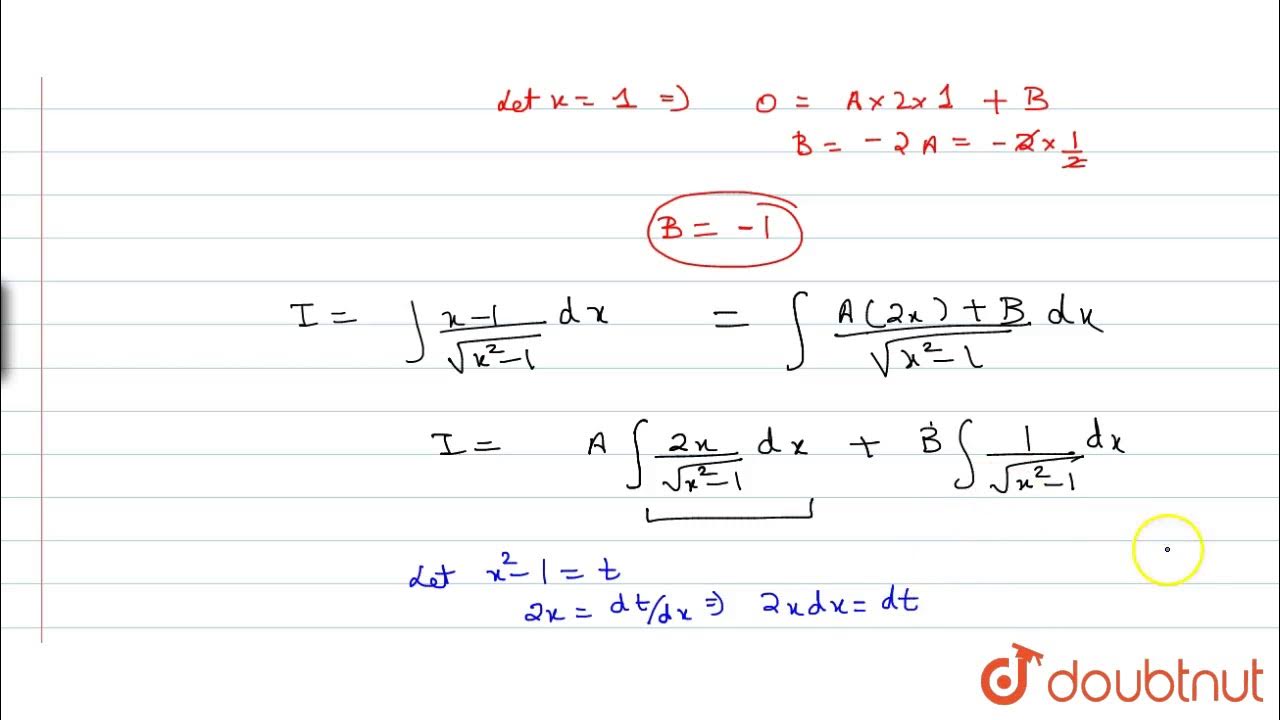 Let x = 1 ⇒ 0 = A × 2 × 1 + B
B = - 2 A = - 2 × 1/2
B = - 1
I = ∫ x-1/√x²-1 dx = ∫ A(2x) + B/√x²-1 dx
I = A ∫ 2x/√x²-1 dx + B ∫ 1/√x²-1 dx
Let x²-1 = t
2x = dt/dx ⇒ 2xdx = dt
doubtnut